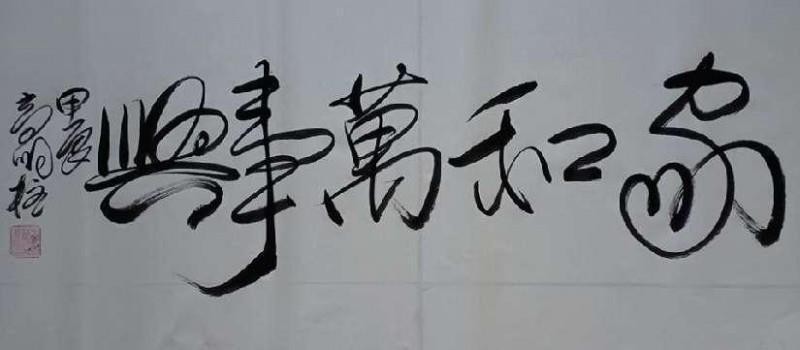 家和萬事興
甲辰
高明柱